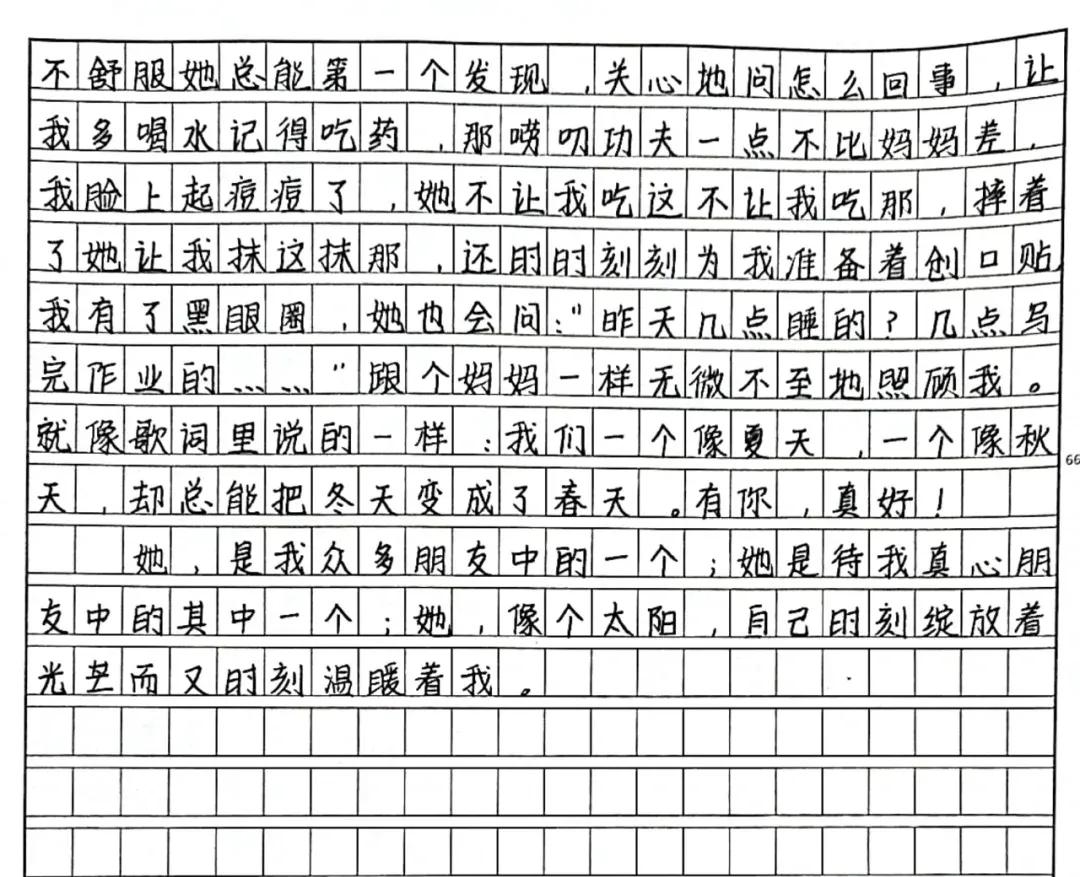 不舒服她总能第一个发现，关心地问怎么回事，让
我多喝水记得吃药，那唠叨功夫一点不比妈妈差，
我脸上起痘痘了，她不让我吃这不让我吃那，摔着
了她让我抹这抹那，还时时刻刻为我准备着创口贴，
我有了黑眼圈，她也会问："昨天几点睡的？几点写
完作业的……"跟个妈妈一样无微不至地照顾我。
就像歌词里说的一样：我们一个像夏天，一个像秋
天，却总能把冬天变成了春天。有你，真好！
她，是我众多朋友中的一个；她是待我真心朋
友中的其中一个；她，像个太阳，自己时刻绽放着
光芒而又时刻温暖着我。
66